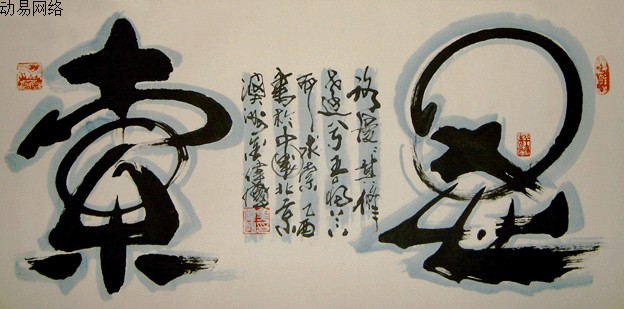 动易网络
思索
路漫漫其修
远兮吾将上下
而求索乙酉
書於中國北京
澳洲